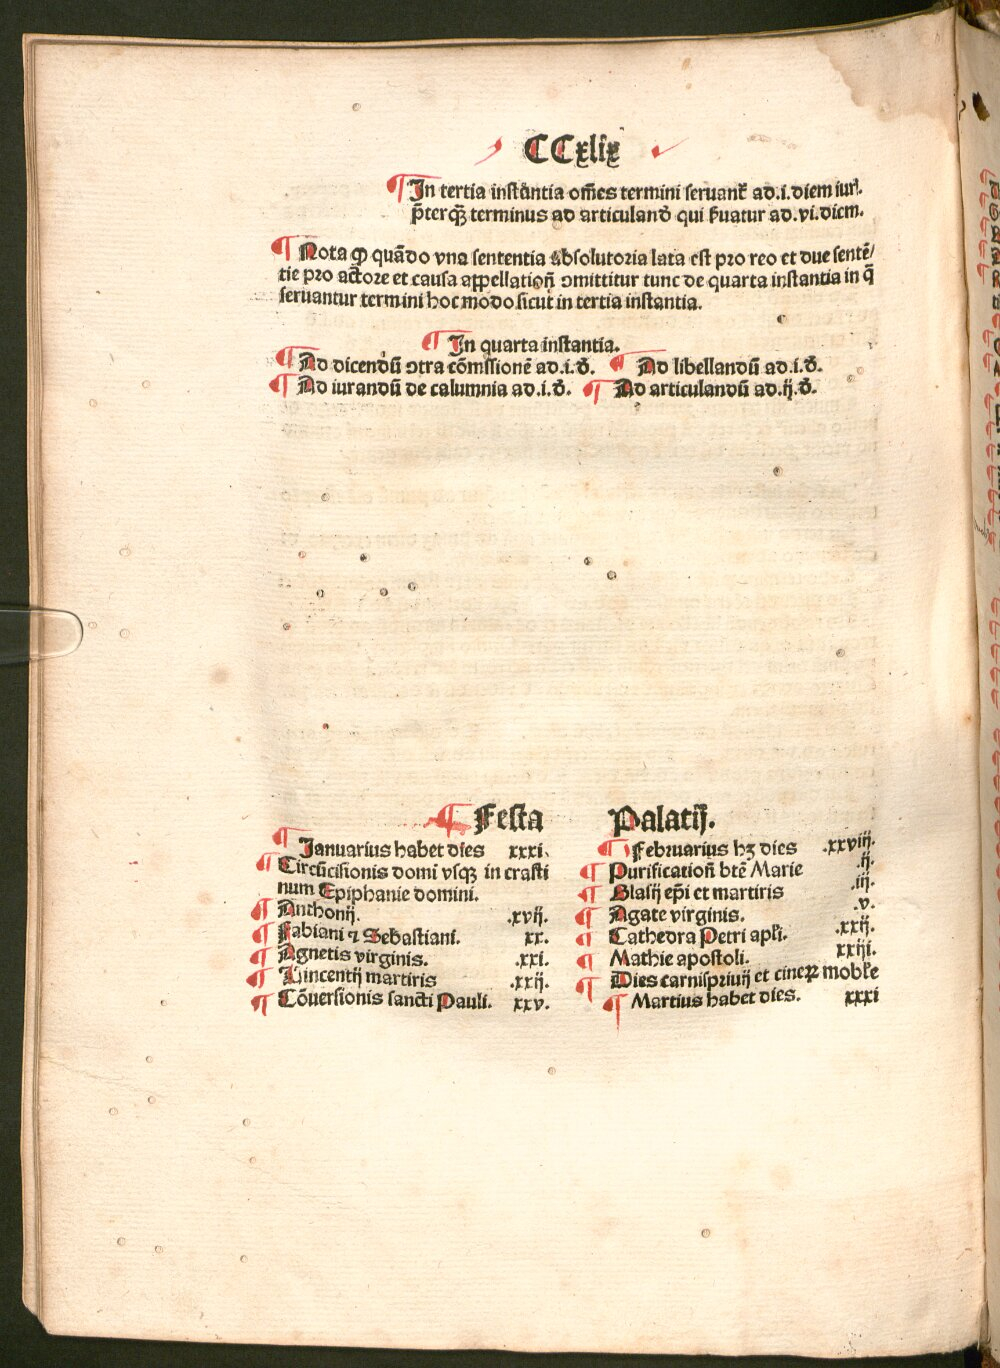 CCxlix
¶ In tertia instãntia om̃es termini seruant᷑ ad.i.diem iurꝭ.
p̃terq̃ꝫ terminus ad articuland̃ qui s̃uatur ad.vi.diem.
¶ Nota ꝙ quãdo vna sententia absolutoria lata est pro reo et due sentẽ/
tie pro actore et causa appellation̄ ↄmittitur tunc de quarta instantia in q̄
seruantur termini hoc modo sicut in tertia instantia.
¶ In quarta instantia.
¶ Ad dicendũ ↄtra cõmssionẽ ad.i.d̃. ¶ Ad libellandũ ad.i.d̃.
¶ Ad iurandũ de calumnia ad.i.d̃. ¶ Ad articulandũ ad.ij.d̃.
¶ Festa Palatij.
¶ Januarius habet dies xxxi.
¶ Circũcisionis domi vsqꝫ in crasti
num Epiphanie domini.
¶ Anthonij. .xvij.
¶ Fabiani ⁊ Sebastiani. xx.
¶ Agnetis virginis. .xxi.
¶ Uincentij martiris .xxij.
¶ Cõuersionis sancti Pauli. xxv.
¶ Februarius hꝫ dies .xxviij.
¶ Purification̄ btẽ Marie .ij.
¶ Blasij ep̄i et martiris .iij.
¶ Agate virginis. .v.
¶ Cathedra Petri apl̄i. .xxij.
¶ Mathie apostoli. xxiij.
¶ Dies carnispriuij et cineꝝ mobl̄e
¶ Martius habet dies. xxxi